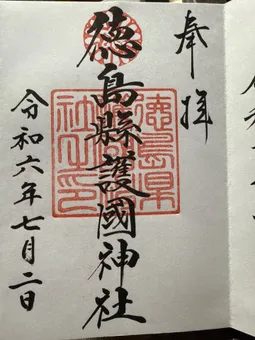 奉拝
徳島縣護國神社
徳島県
社之印
令和六年七月二日